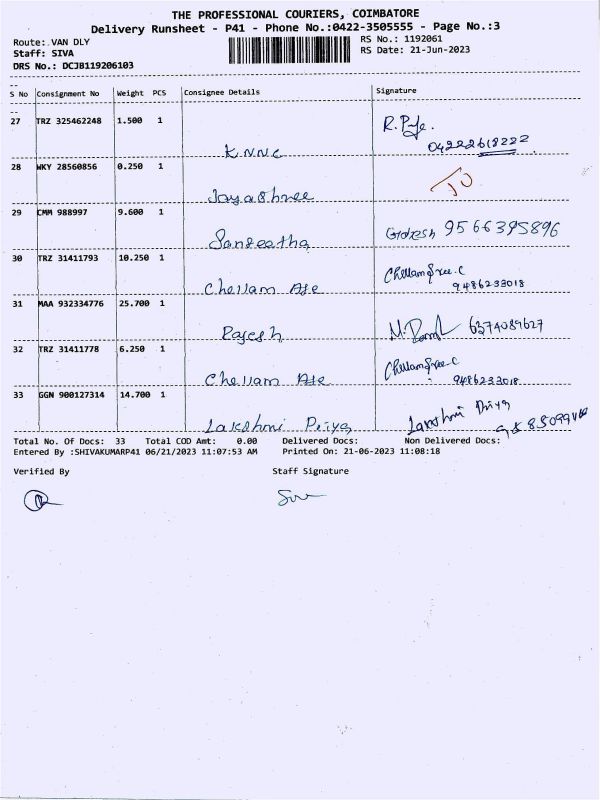 THE PROFESSIONAL COURIERS, COIMBATORE
Delivery Runsheet - P41 - Phone No.:0422-3505555 - Page No.:3
Route: VAN DLY RS No.: 1192061
Staff: SIVA RS Date: 21-Jun-2023
DRS No.: DCJB119206103
S No Consignment No Weight PCS Consignee Details Signature
27 TRZ 325462248 1.500 1
K.NNC 04222618222
28 WKY 28560856 0.250 1
Jayashree
29 CMM 988997 9.600 1
Sangeetha 9566395896
30 TRZ 31411793 10.250 1 Chellamsree.C
Chellam 9486233018
31 MAA 932334776 25.700 1
Rajesh 6374089627
32 TRZ 31411778 6.250 1 Chellamsree.C
Chellam 9486233018
33 GGN 900127314 14.700 1 Lakshmi Priya
Lakshmi Priya
Total No. Of Docs: 33 Total COD Amt: 0.00 Delivered Docs: Non Delivered Docs:
Entered By :SHIVAKUMARP41 06/21/2023 11:07:53 AM Printed On: 21-06-2023 11:08:18
Verified By Staff Signature